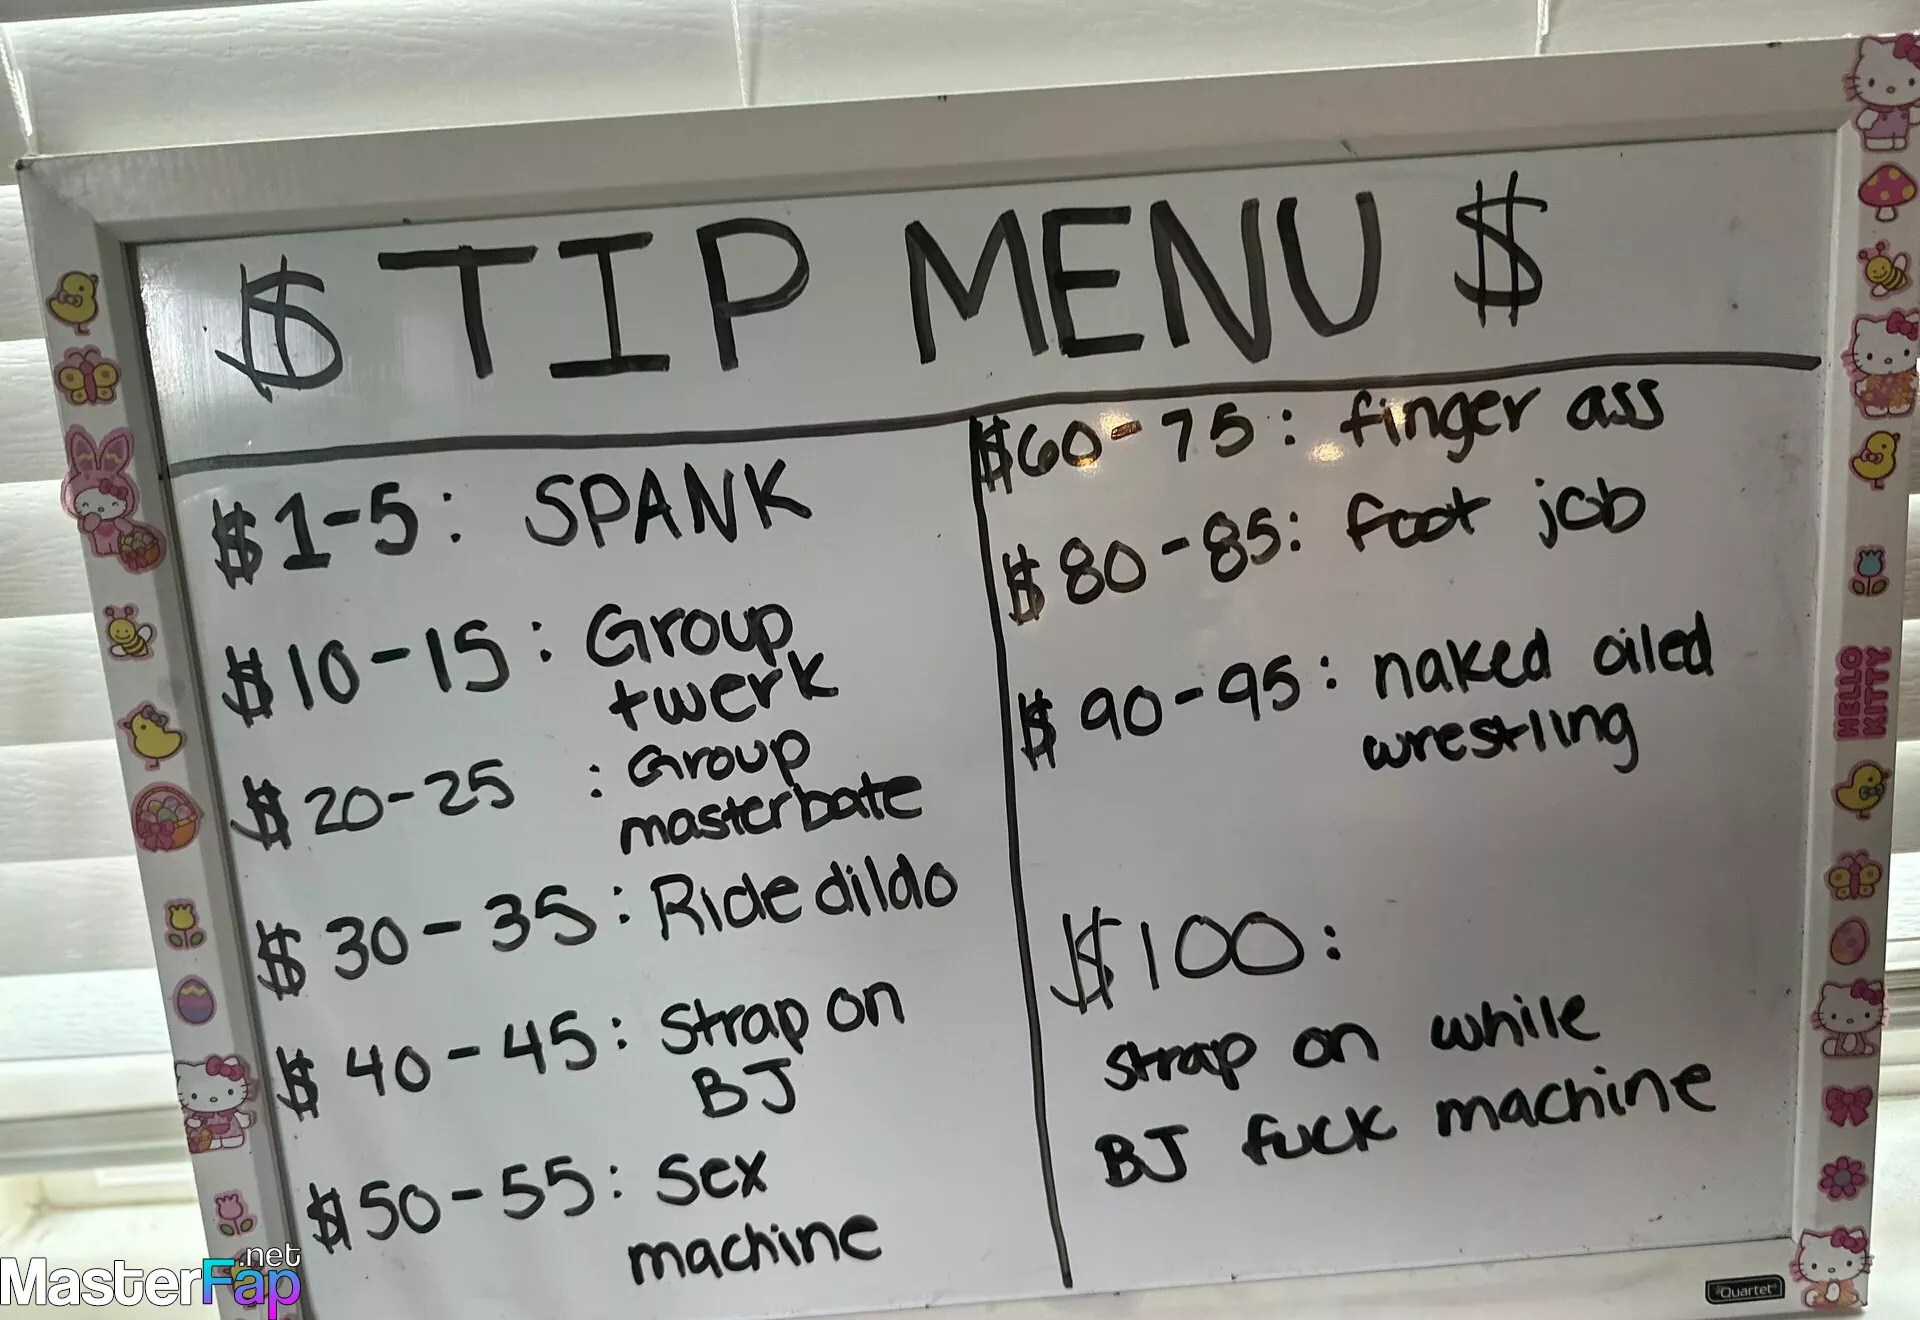 $ TIP MENU $
$1-5: SPANK
$10-15: Group
twerk
$20-25: Group
masterbate
$30-35: Ride dildo
$40-45: Strap on
BJ
$50-55: Sex
machine
$60-75: finger ass
$80-85: foot job
$90-95: naked oiled
wrestling
$100:
strap on while
BJ fuck machine
HELLO
KITTY
Quartet
MasterFap.net